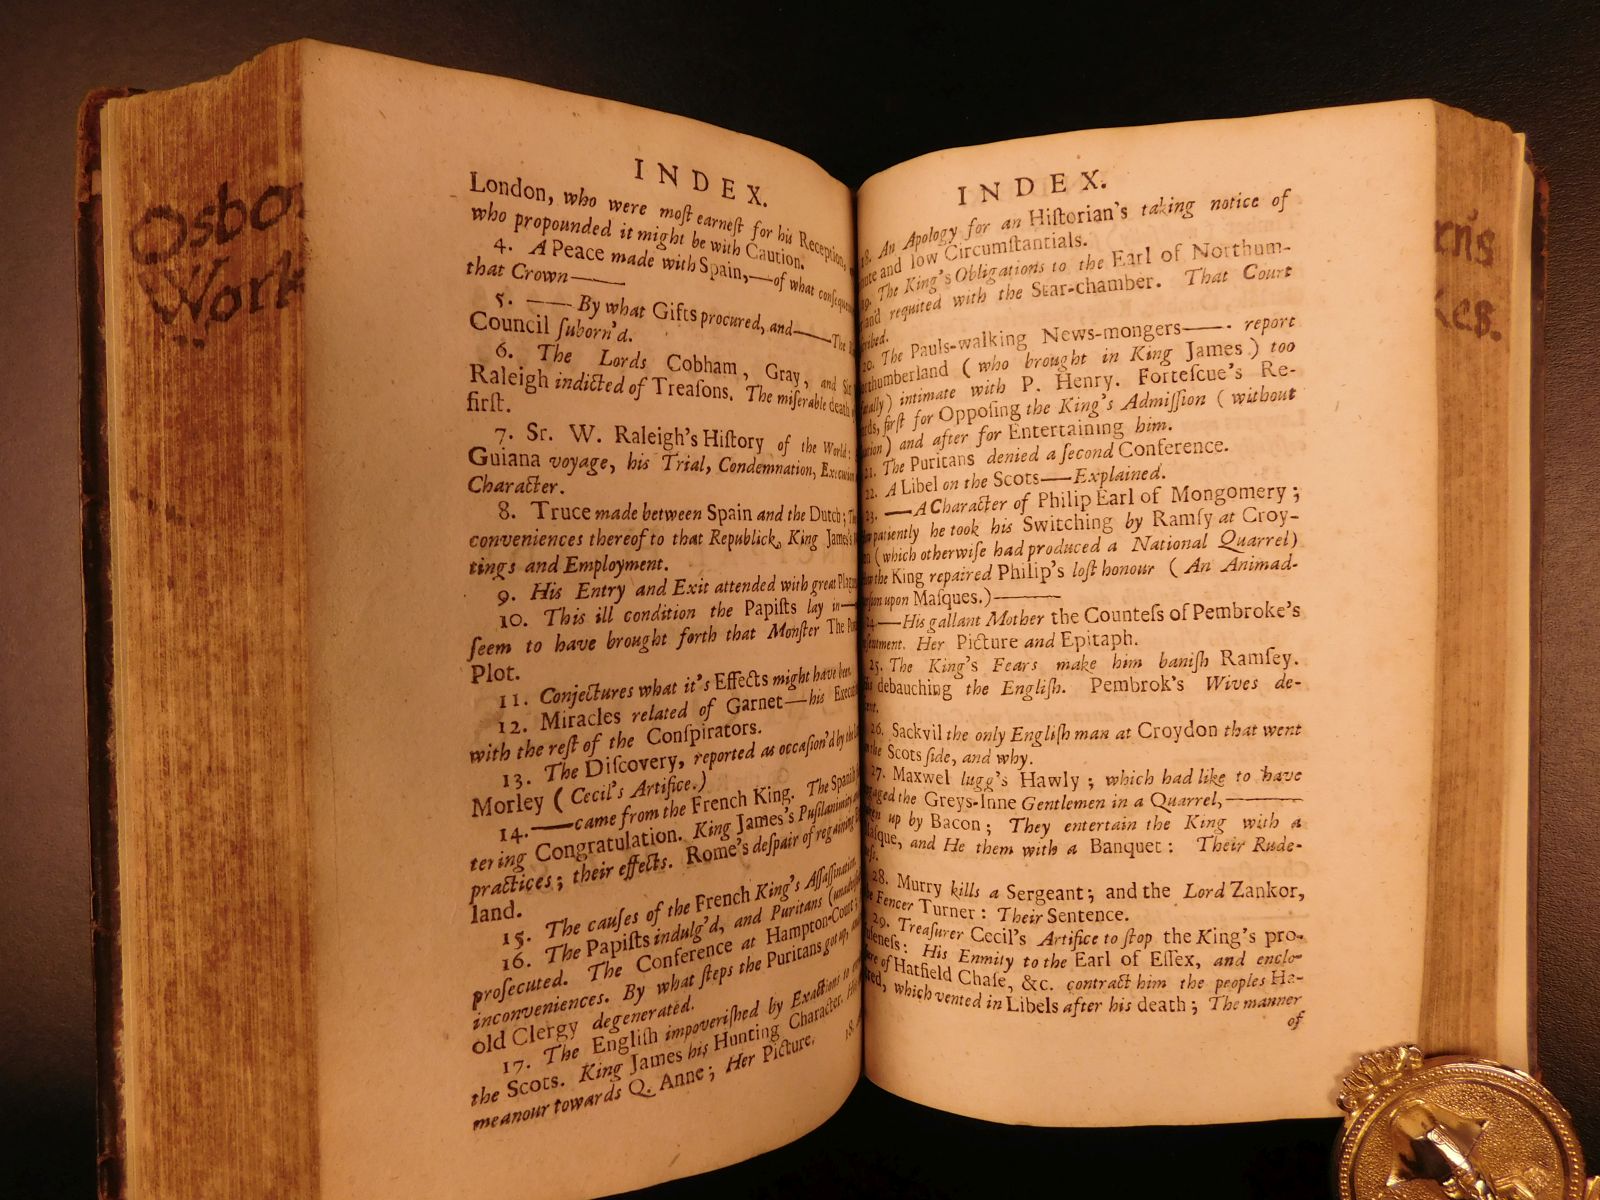 Osbo
Work
INDEX.
London, who were moſt earneſt for his Reception,
who propounded it might be with Caution.
4. A Peace made with Spain,—of what
that Crown——
5. —— By what Gifts procured, and——The
Council ſuborn'd.
6. The Lords Cobham, Gray, and Sir
Raleigh indicted of Treaſons. The miſerable death
firſt.
7. Sr. W. Raleigh's Hiſtory of the World:
Guiana voyage, his Trial, Condemnation, Execution
Character.
8. Truce made between Spain and the Dutch;
conveniences thereof to that Republick, King James's
tings and Employment.
9. His Entry and Exit attended with great
10. This ill condition the Papiſts lay in—
ſeem to have brought forth that Monſter The
Plot.
11. Conjectures what it's Effects might have been.
12. Miracles related of Garnet—his
with the reſt of the Conſpirators.
13. The Diſcovery, reported as occaſion'd by the
Morley ( Cecil's Artifice.)
14.——came from the French King. The Spaniſh
tering Congratulation. King James's Puſilanimity
practices; their effects. Rome's deſpair of regaining
land.
15. The cauſes of the French King's Aſſaſſination.
16. The Papiſts indulg'd, and Puritans
proſecuted. The Conference at Hampton-Court;
inconveniences. By what ſteps the Puritans got up,
old Clergy degenerated.
17. The Engliſh impoveriſhed by Exactions to
the Scots. King James his Hunting Character.
meanour towards Q. Anne; Her Picture.
18.
INDEX.
18. An Apology for an Hiſtorian's taking notice of
and low Circumſtantials.
19. The King's Obligations to the Earl of Northum-
and requited with the Star-chamber. That Court
20. The Pauls-walking News-mongers——. report
( who brought in King James ) too
intimate with P. Henry. Forteſcue's Re-
firſt for Oppoſing the King's Admiſſion ( without
) and after for Entertaining him.
21. The Puritans denied a ſecond Conference.
22. A Libel on the Scots——Explained.
23. ——A Character of Philip Earl of Mongomery;
patiently he took his Switching by Ramſy at Croy-
(which otherwiſe had produced a National Quarrel)
the King repaired Philip's loſt honour ( An Animad-
upon Maſques.)———
24.——His gallant Mother the Counteſs of Pembroke's
Her Picture and Epitaph.
25. The King's Fears make him baniſh Ramſey.
debauching the Engliſh. Pembrok's Wives de-
26. Sackvil the only Engliſh man at Croydon that went
the Scots ſide, and why.
27. Maxwel lugg's Hawly; which had like to have
the Greys-Inne Gentlemen in a Quarrel,———
up by Bacon; They entertain the King with a
Maſque, and He them with a Banquet: Their Rude-
28. Murry kills a Sergeant; and the Lord Zankor,
Fencer Turner: Their Sentence.
29. Treaſurer Cecil's Artifice to ſtop the King's pro-
His Enmity to the Earl of Eſſex, and enclo-
of Hatfield Chaſe, &c. contract him the peoples Ha-
which vented in Libels after his death; The manner
of
rns
kes.